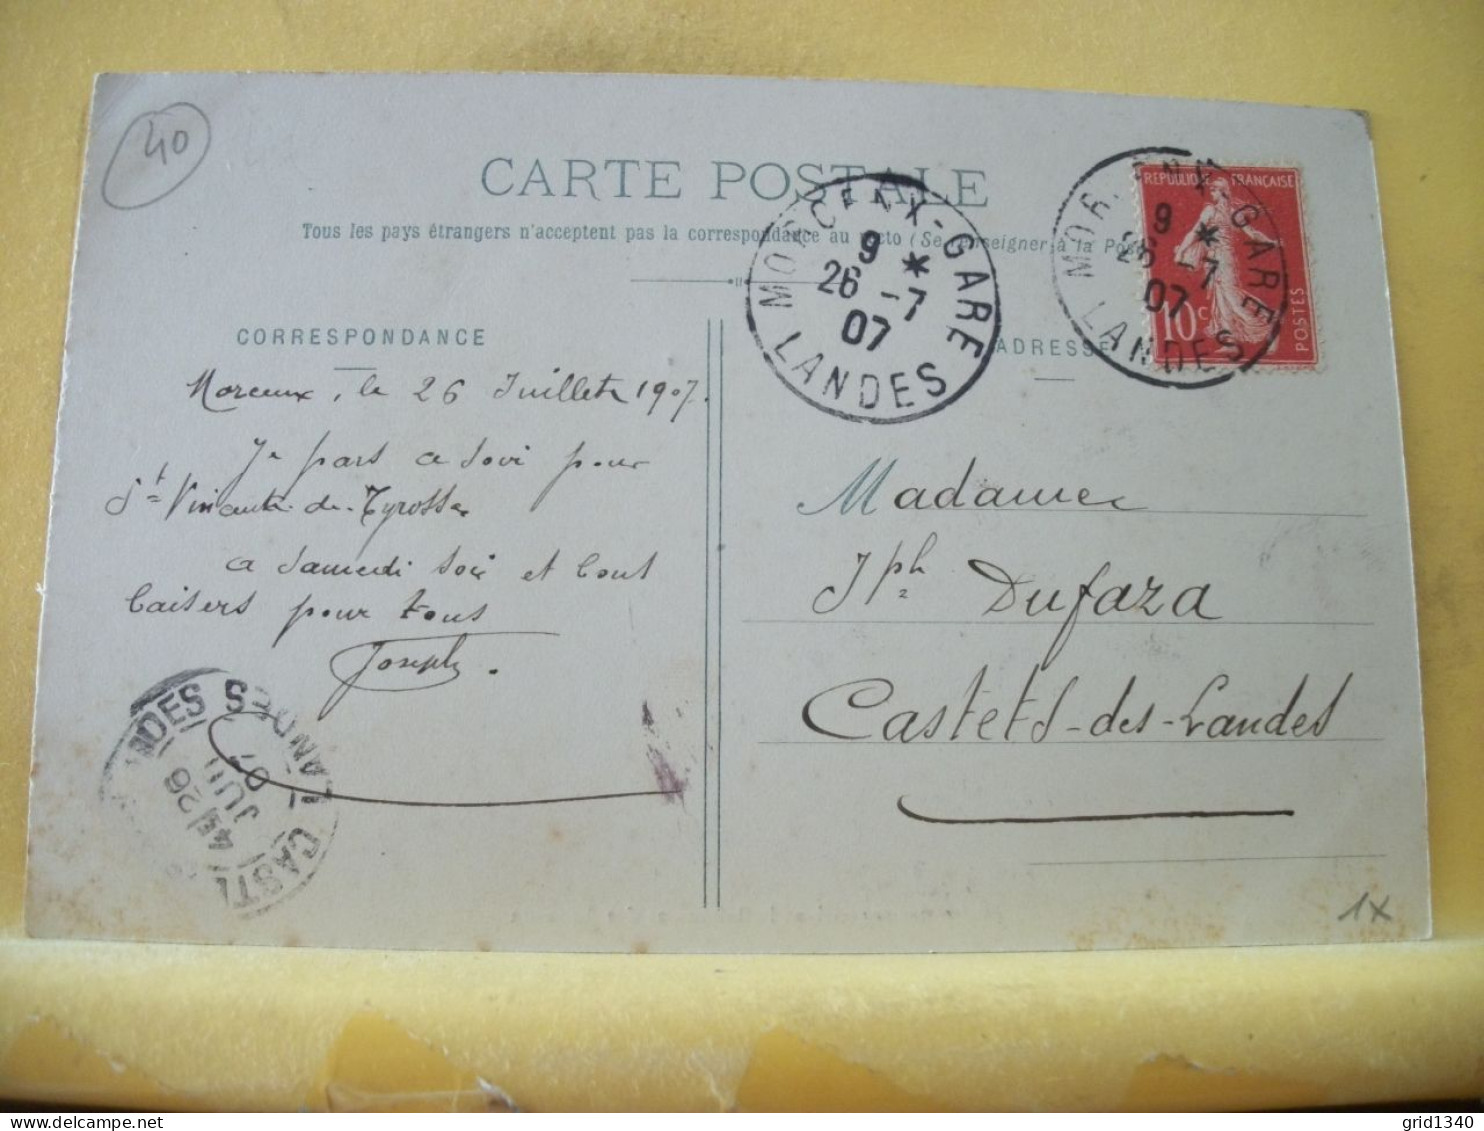 40
CARTE POSTALE
Tous les pays étrangers n'acceptent pas la correspondance au recto (Se renseigner à la Poste
MORCENX-GARE
9 *
26 -7
07
LANDES
REPUBLIQUE FRANÇAISE
10c
POSTES
MOR. ENX-GARE
9 *
26 -7
07
LANDES
CORRESPONDANCE
ADRESSE
Morcenx, le 26 Juillet 1907.
Je pars ce soir pour
St Vincent-de-Tyrosse
a Samedi soir et bons
baisers pour tous
Joseph.
Madame
Jph Dufaza
Castets-des-Landes
CAST
LANDES
LANDES
4
26
JUIL
07
1x
grid1340